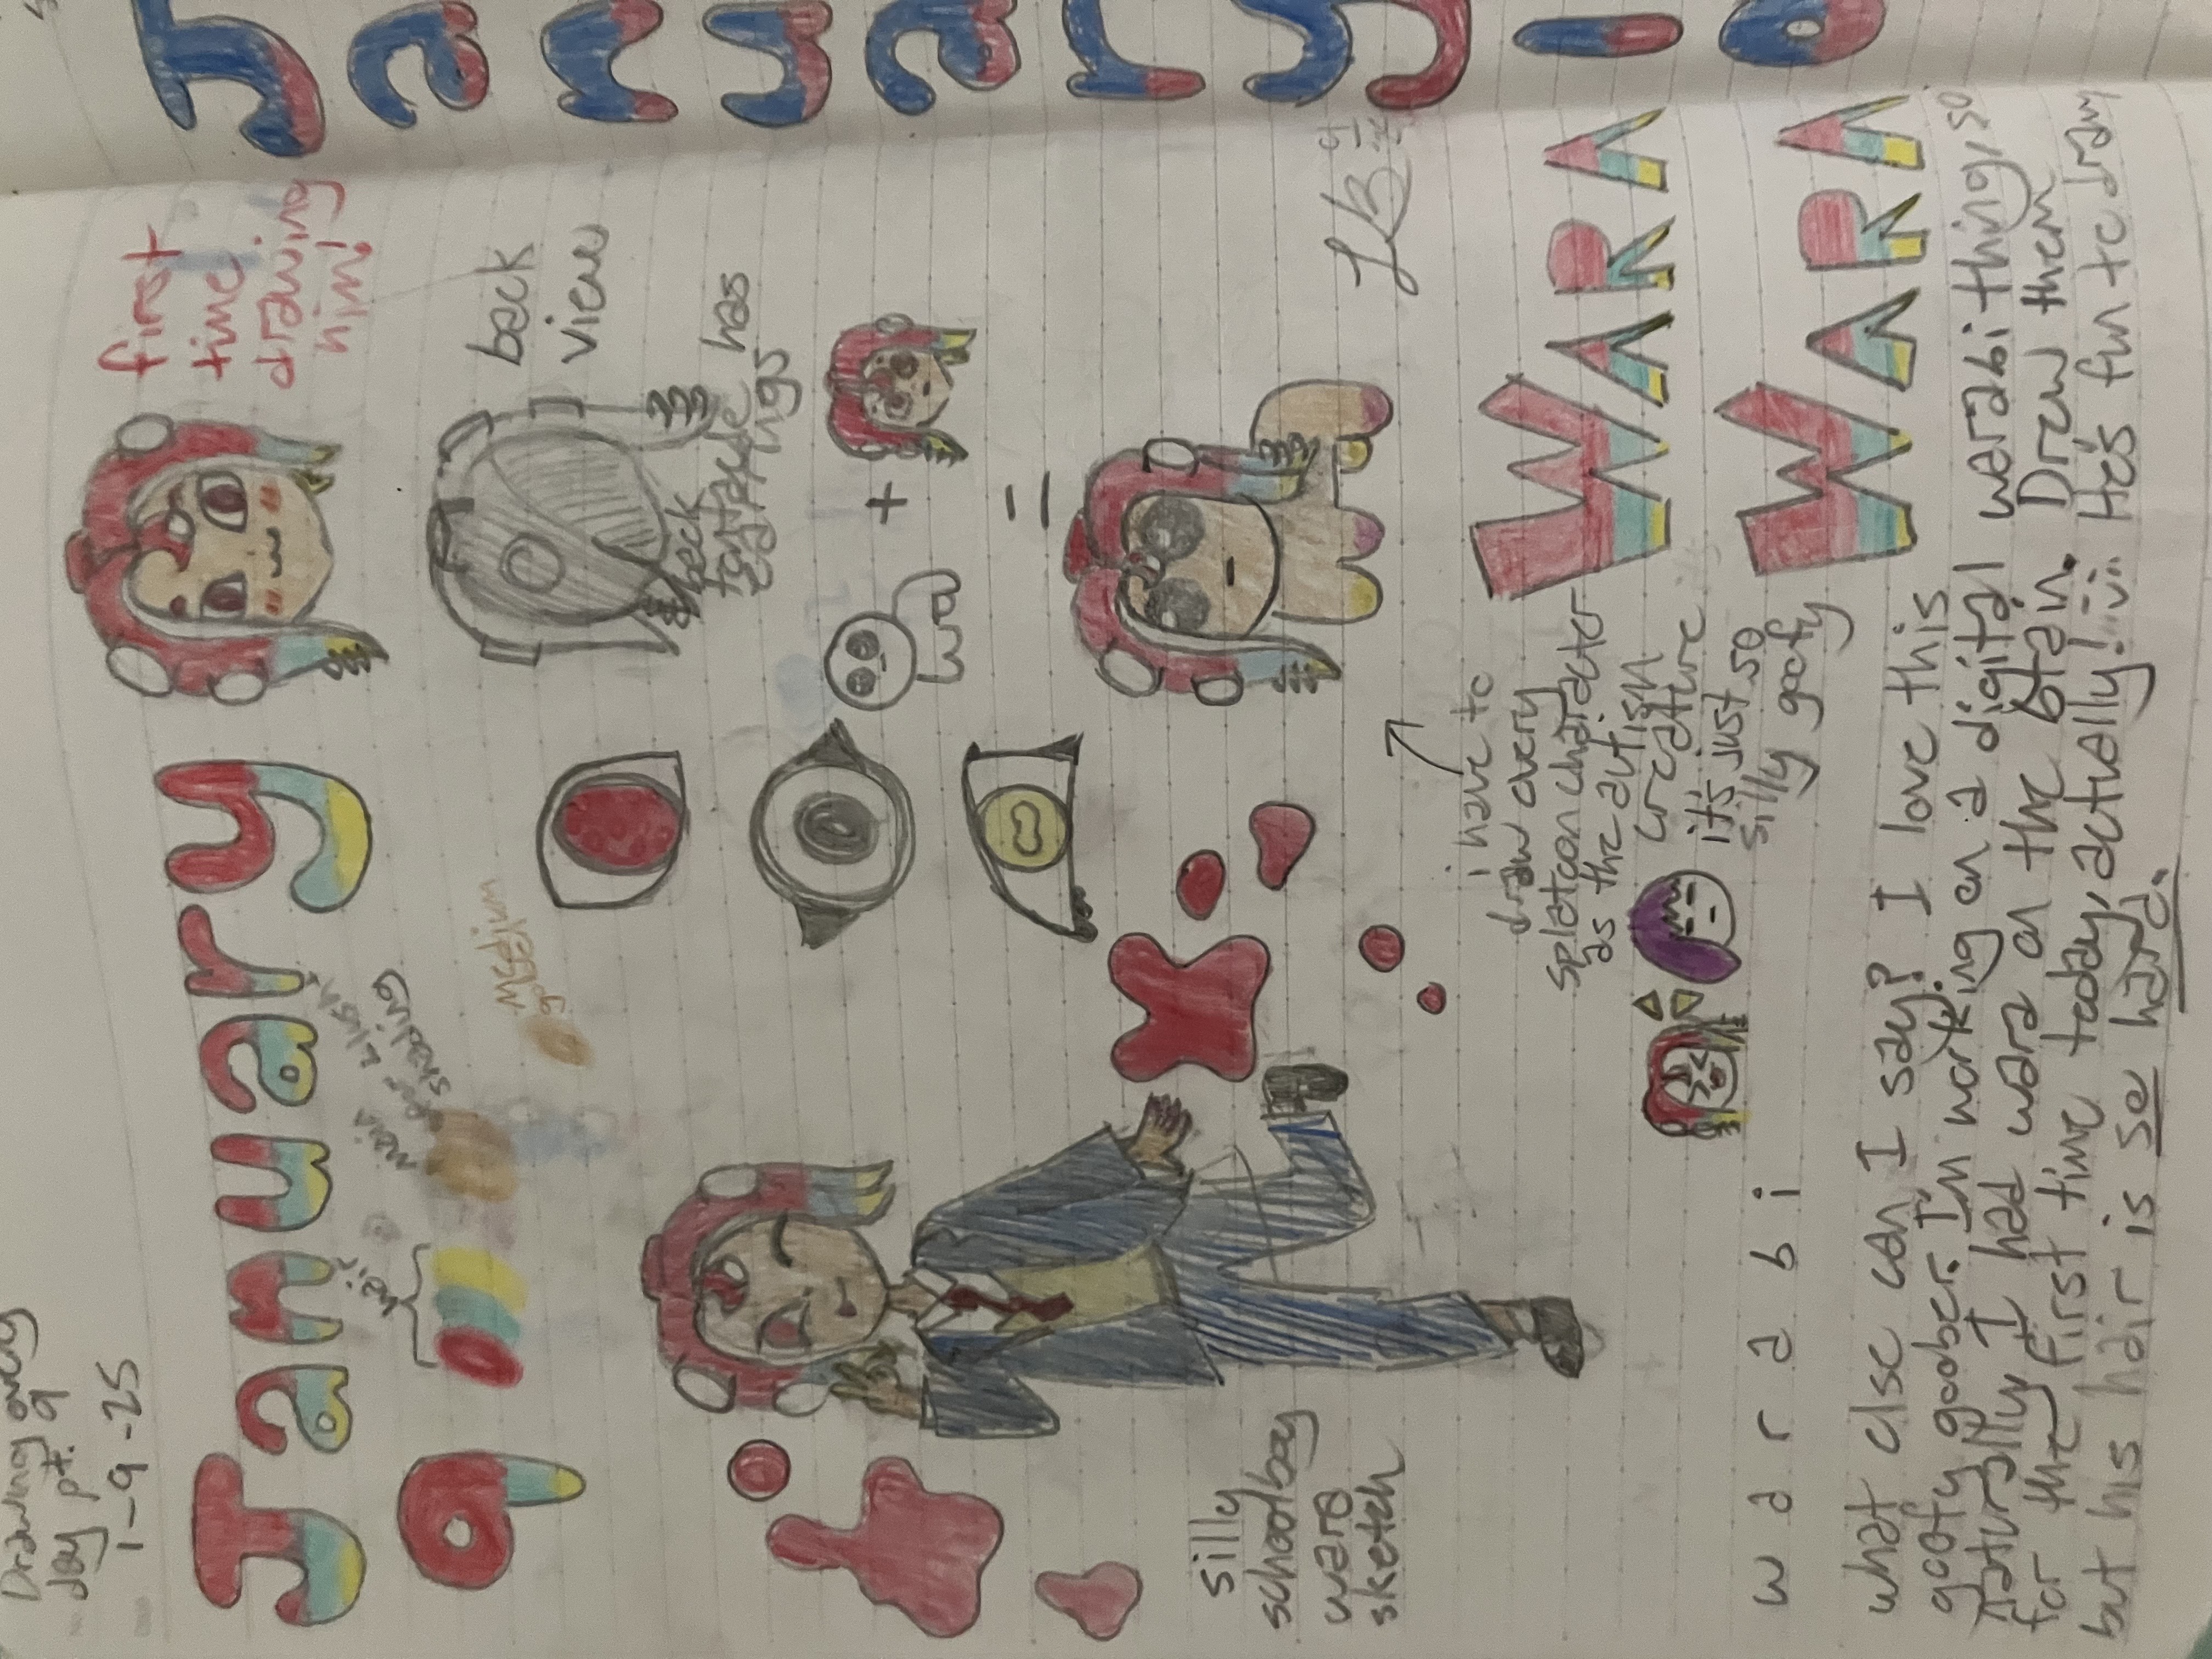 Drawing every
day pt. 9
1-9-25
January
9
hair
main
for blush +
shading
medium
golden
first
time
drawing
him!
back
view
back
tentacle has
earrings
+
=
silly
schoolboy
wara
sketch
i have to
draw every
splatoon character
as the autism
creature
it's just so
silly goofy
LB
WARA
WARA
w a r a b i
what else can I say? I love this
goofy goober. I'm working on a digital warabi thing, so
naturally, I had wara on the brain. Drew them
for the first time today, actually! He's fun to draw
but his hair is so hard.
January
10